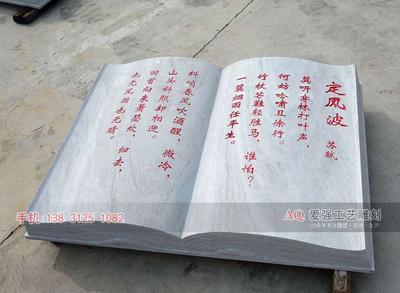 定风波
苏轼
莫听穿林打叶声，
何妨吟啸且徐行。
竹杖芒鞋轻胜马，谁怕？
一蓑烟雨任平生。
料峭春风吹酒醒，微冷，
山头斜照却相迎。
回首向来萧瑟处，归去，
也无风雨也无晴。
手机: 138 3125 1082
AQ 爱强工艺雕刻